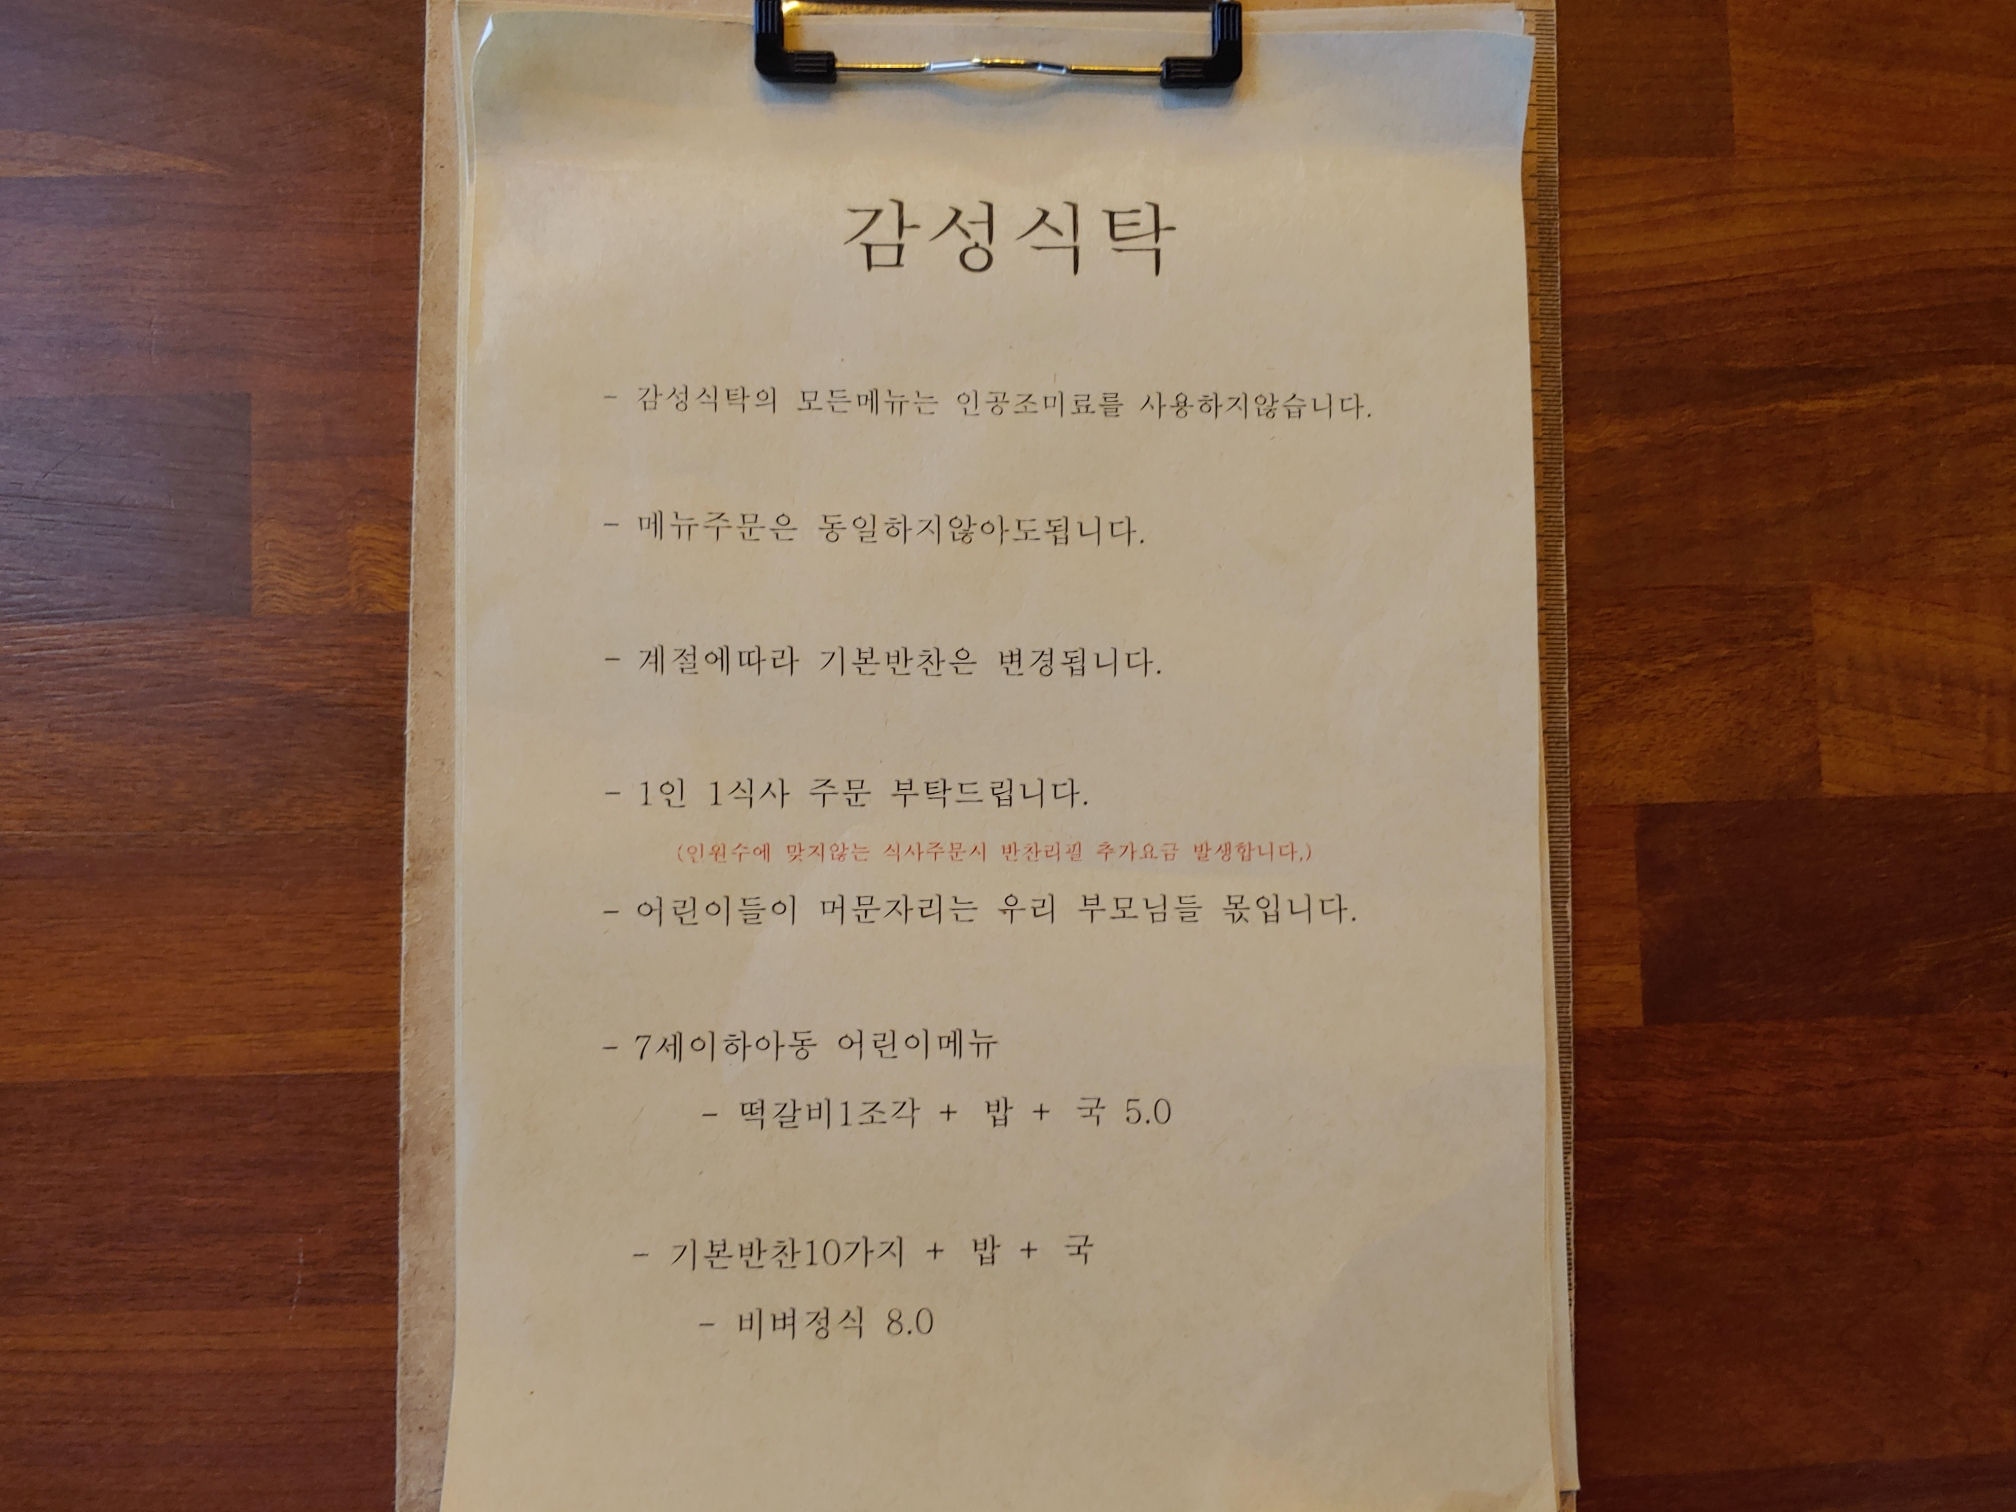 감성식탁
- 감성식탁의 모든메뉴는 인공조미료를 사용하지않습니다.
- 메뉴주문은 동일하지않아도됩니다.
- 계절에따라 기본반찬은 변경됩니다.
- 1인 1식사 주문 부탁드립니다.
(인원수에 맞지않는 식사주문시 반찬리필 추가요금 발생합니다.)
- 어린이들이 머문자리는 우리 부모님들 몫입니다.
- 7세이하아동 어린이메뉴
- 떡갈비1조각 + 밥 + 국 5.0
- 기본반찬10가지 + 밥 + 국
- 비벼정식 8.0